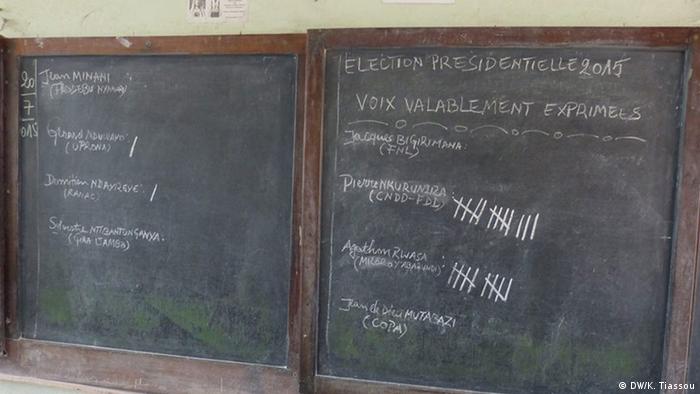 20
7
015
Jean MINANI
(FRODEBU NYAKURI)
Gérard NDUWAYO:
(UPRONA)
Domitien NDAYIZEYE:
(RANAC)
Sylvestre NTIBANTUNGANYA:
(GIRA IJAMBO)
ELECTION PRESIDENTIELLE 2015
VOIX VALABLEMENT EXPRIMEES
Jacques BIGIRIMANA:
(FNL)
Pierre NKURUNZIZA:
(CNDD-FDD)
Agathon RWASA:
Jean de Dieu MUTABAZI
(COPA)
© DW/K. Tiassou